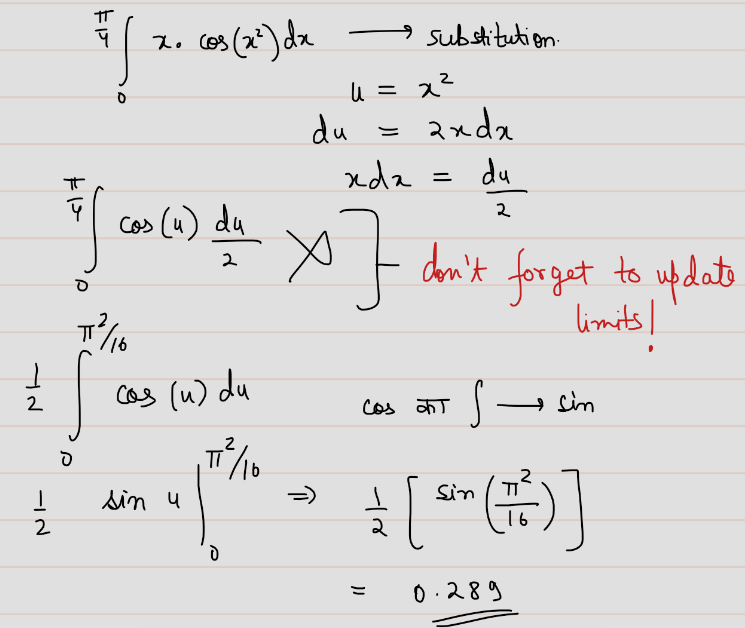 ∫₀^{π/4} x. cos(x²)dx ⟶ substitution.
u = x²
du = 2xdx
xdx = du/2
∫₀^{π/4} cos(u) du/2 ✗ ] don't forget to update
limits!
1/2 ∫₀^{π²/16} cos (u) du
cos का ∫ ⟶ sin
1/2 sin u |₀^{π²/16} ⇒ 1/2 [sin(π²/16)]
= 0.289